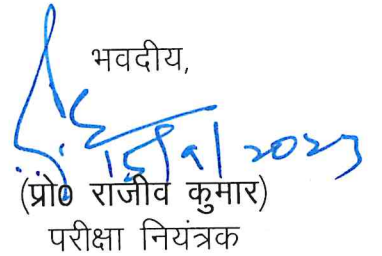 भवदीय,
15/9/2023
(प्रो० राजीव कुमार)
परीक्षा नियंत्रक